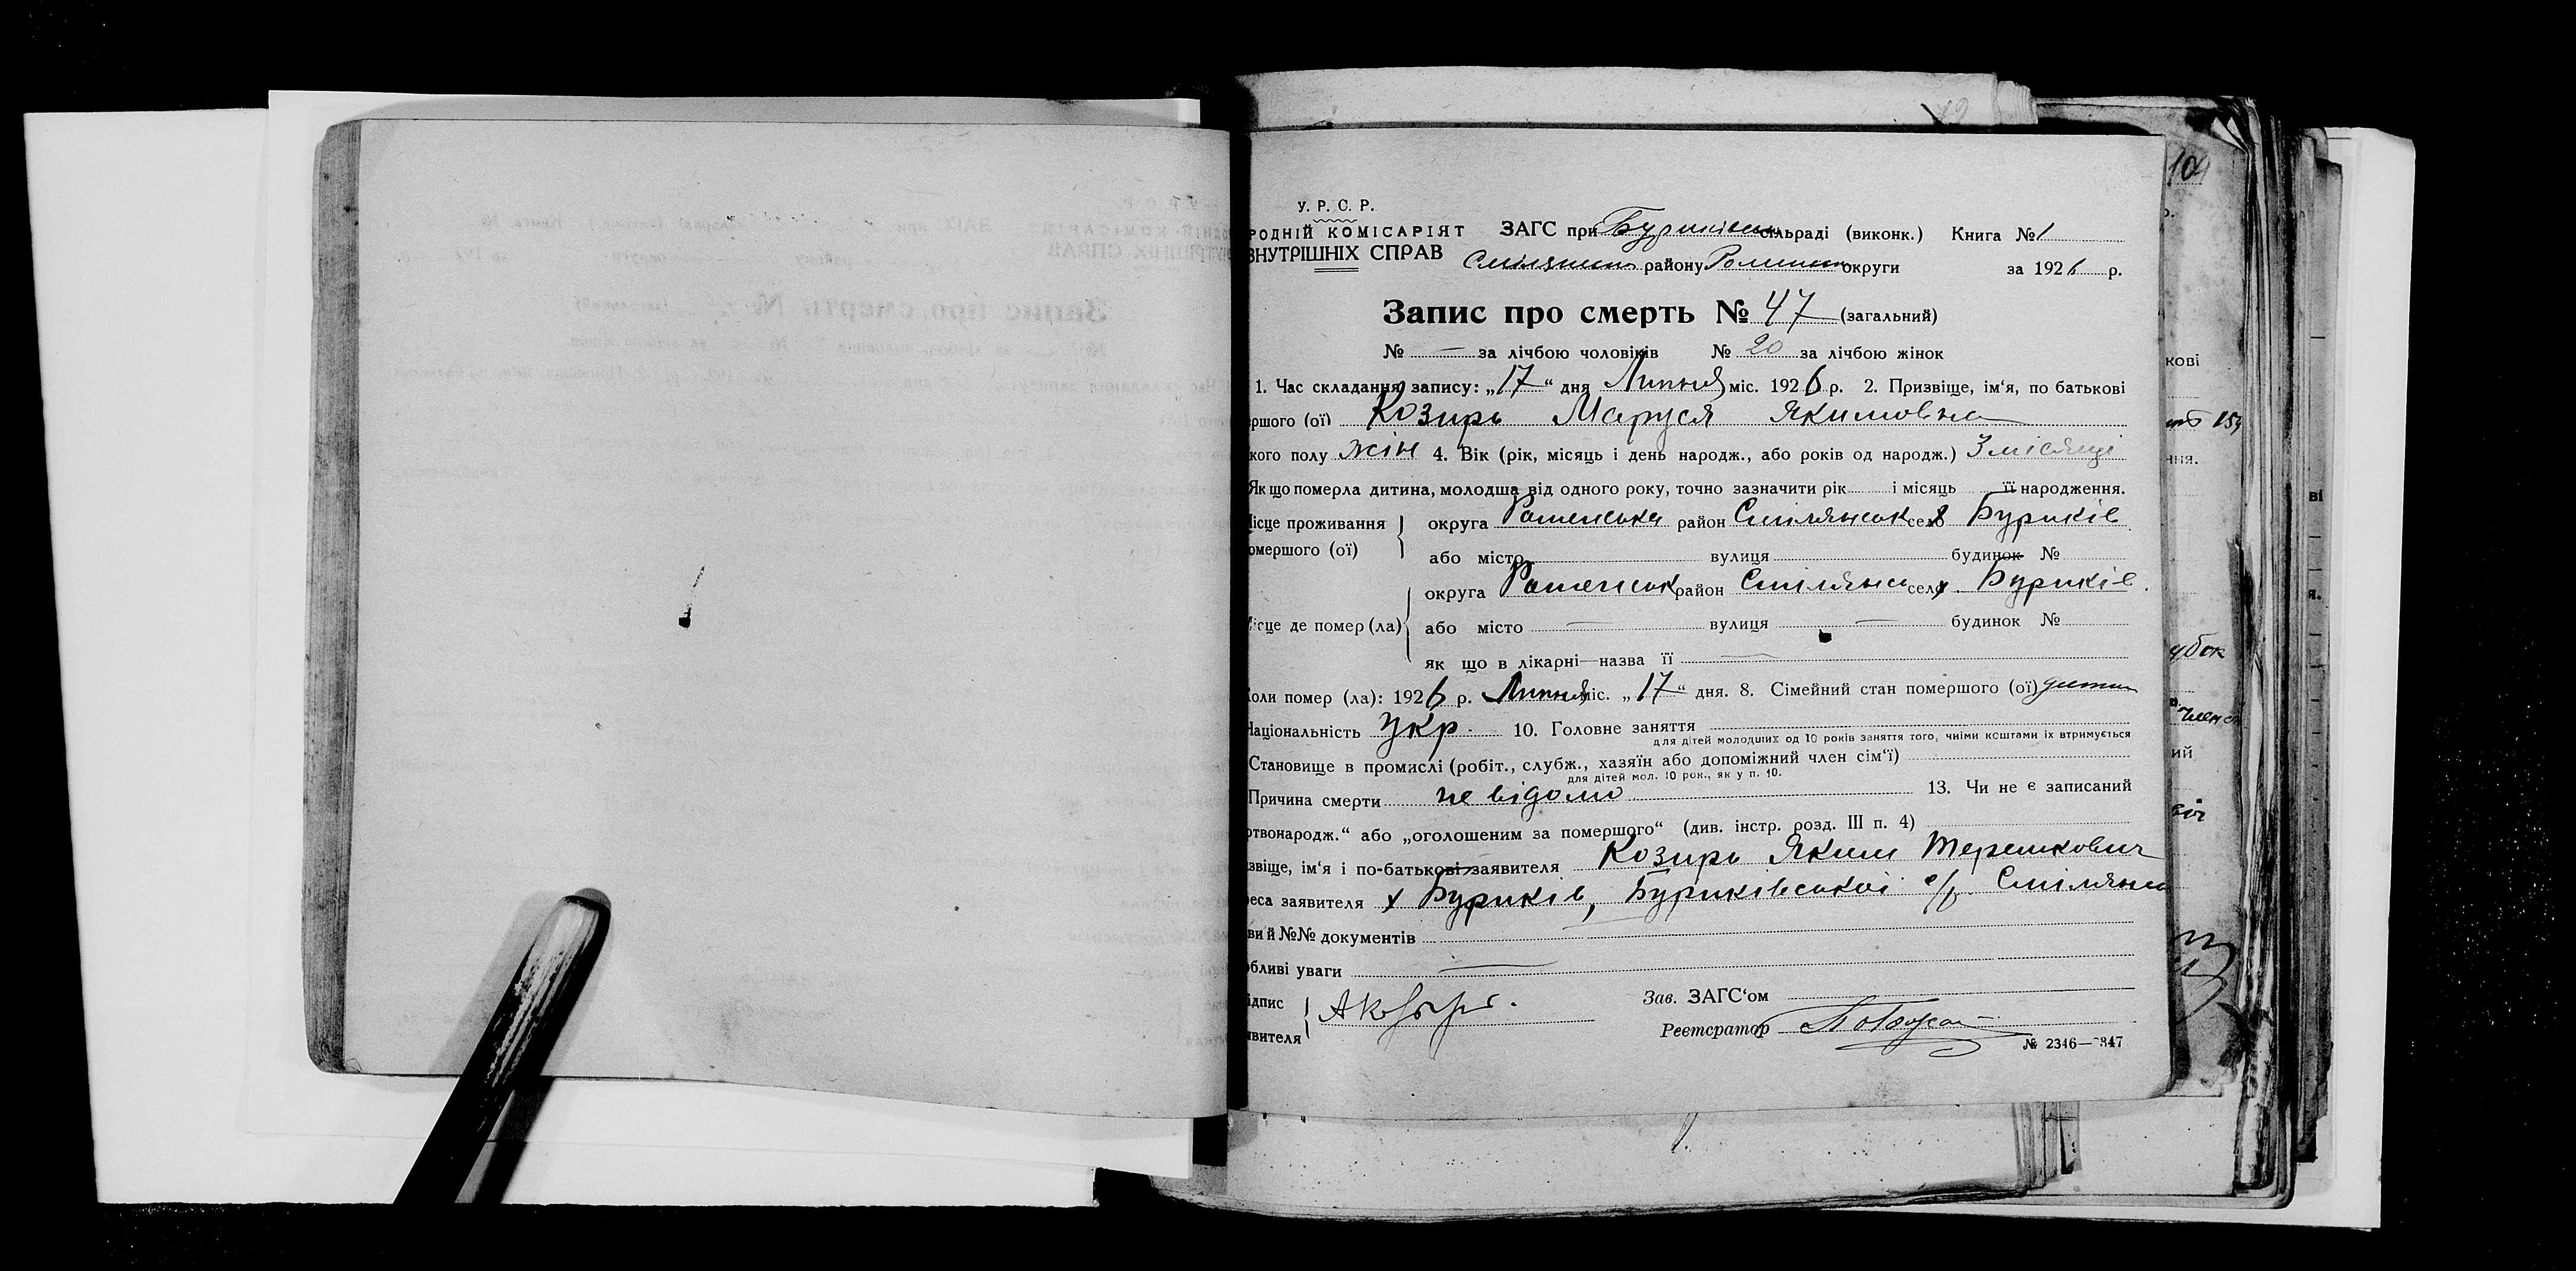 У. Р. С. Р.
РОДНІЙ КОМІСАРІЯТ ЗАГС при Буриківськ сільраді (виконк.) Книга № 1
ВНУТРІШНІХ СПРАВ Смілянськ району Роменськ округи за 1926 р.
Запис про смерть № 47 (загальний)
№ — за лічбою чоловіків № 20 за лічбою жінок
1. Час складання запису: „17“ дня Липня міс. 1926 р. 2. Призвіще, ім'я, по батькові
ршого (ої) Козирь Маруся Якимовна
кого полу жін 4. Вік (рік, місяць і день народж., або років од народж.) 3 місяці
Як що померла дитина, молодша від одного року, точно зазначити рік і місяць її народження.
ісце проживання округа Роменська район Смілянськ село х Буриків
омершого (ої)
або місто вулиця будинок №
округа Роменськ район Смілянс село х Буриків.
ісце де помер (ла) або місто — вулиця — будинок №
як що в лікарні—назва її —
оли помер (ла): 1926 р. Липня міс. „17“ дня. 8. Сімейний стан помершого (ої) дитин
Національність укр. 10. Головне заняття
для дітей молодших од 10 років заняття того, чиїми коштами їх втримується
Становище в промислі (робіт., служб., хазяїн або допоміжний член сім'ї)
для дітей мол. 10 рок., як у п. 10.
Причина смерти не відомо 13. Чи не є записаний
ртвонародж.“ або „оголошеним за помершого“ (див. інстр. розд. III п. 4)
звіще, ім'я і по-батькові заявителя Козирь Яким Терешкович
реса заявителя х Буриків, Буриківської с/р. Смілянсь
ви й №№ документів
обливі уваги —
ідпис
явителя АКозирь.
Зав. ЗАГС'ом
Реєтсратор
№ 2346—2347
19
104
р.
кові
159
ння.
убок
член сі
ий
ві
я.